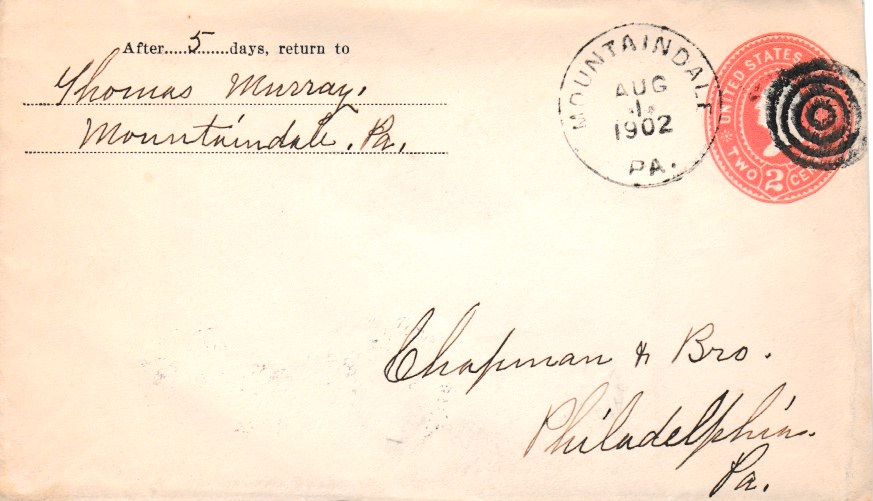 After.....5......days, return to
Thomas Murray.
Mountaindale, Pa.
MOUNTAINDALE
AUG
1
1902
PA.
UNITED STATES
TWO 2 CEN
Chapman & Bro.
Philadelphia.
Pa.